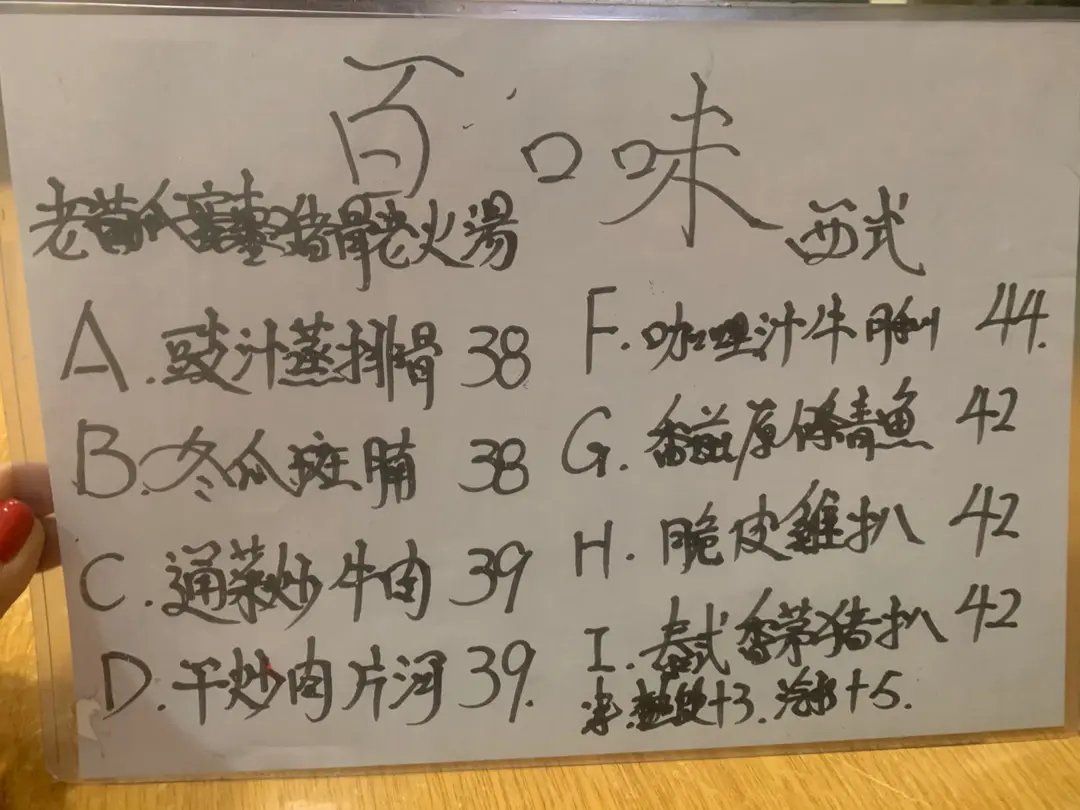 百口味
老黃瓜蜜棗猪骨老火湯
A.豉汁蒸排骨 38
B.冬瓜斑腩 38
C.通菜炒牛肉 39
D.干炒肉片河 39.
西式
F.咖喱汁牛脷 44.
G.香煎原條青魚 42
H.脆皮雞扒 42
I.泰式香茅猪扒 42
凍 +3.汽水+5.